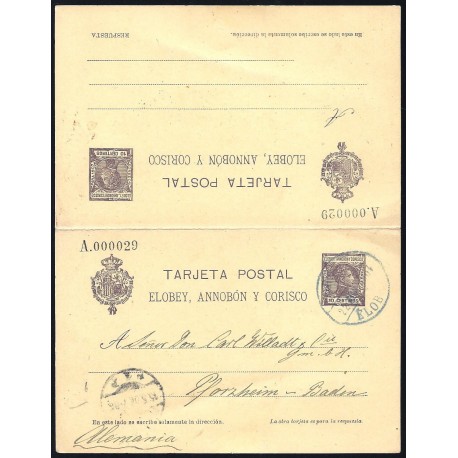 En este lado se escribe solamente la dirección.
RESPUESTA
TARJETA POSTAL
ELOBEY, ANNOBÓN Y CORISCO
10 CENTIMOS
A.000029
A.000029
TARJETA POSTAL
ELOBEY, ANNOBÓN Y CORISCO
10 CENTIMOS
ELOB
A Señor Don Carl
Pforzheim - Baden
En este lado se escribe solamente la dirección.
La otra tarjeta se para la respuesta
Alemania